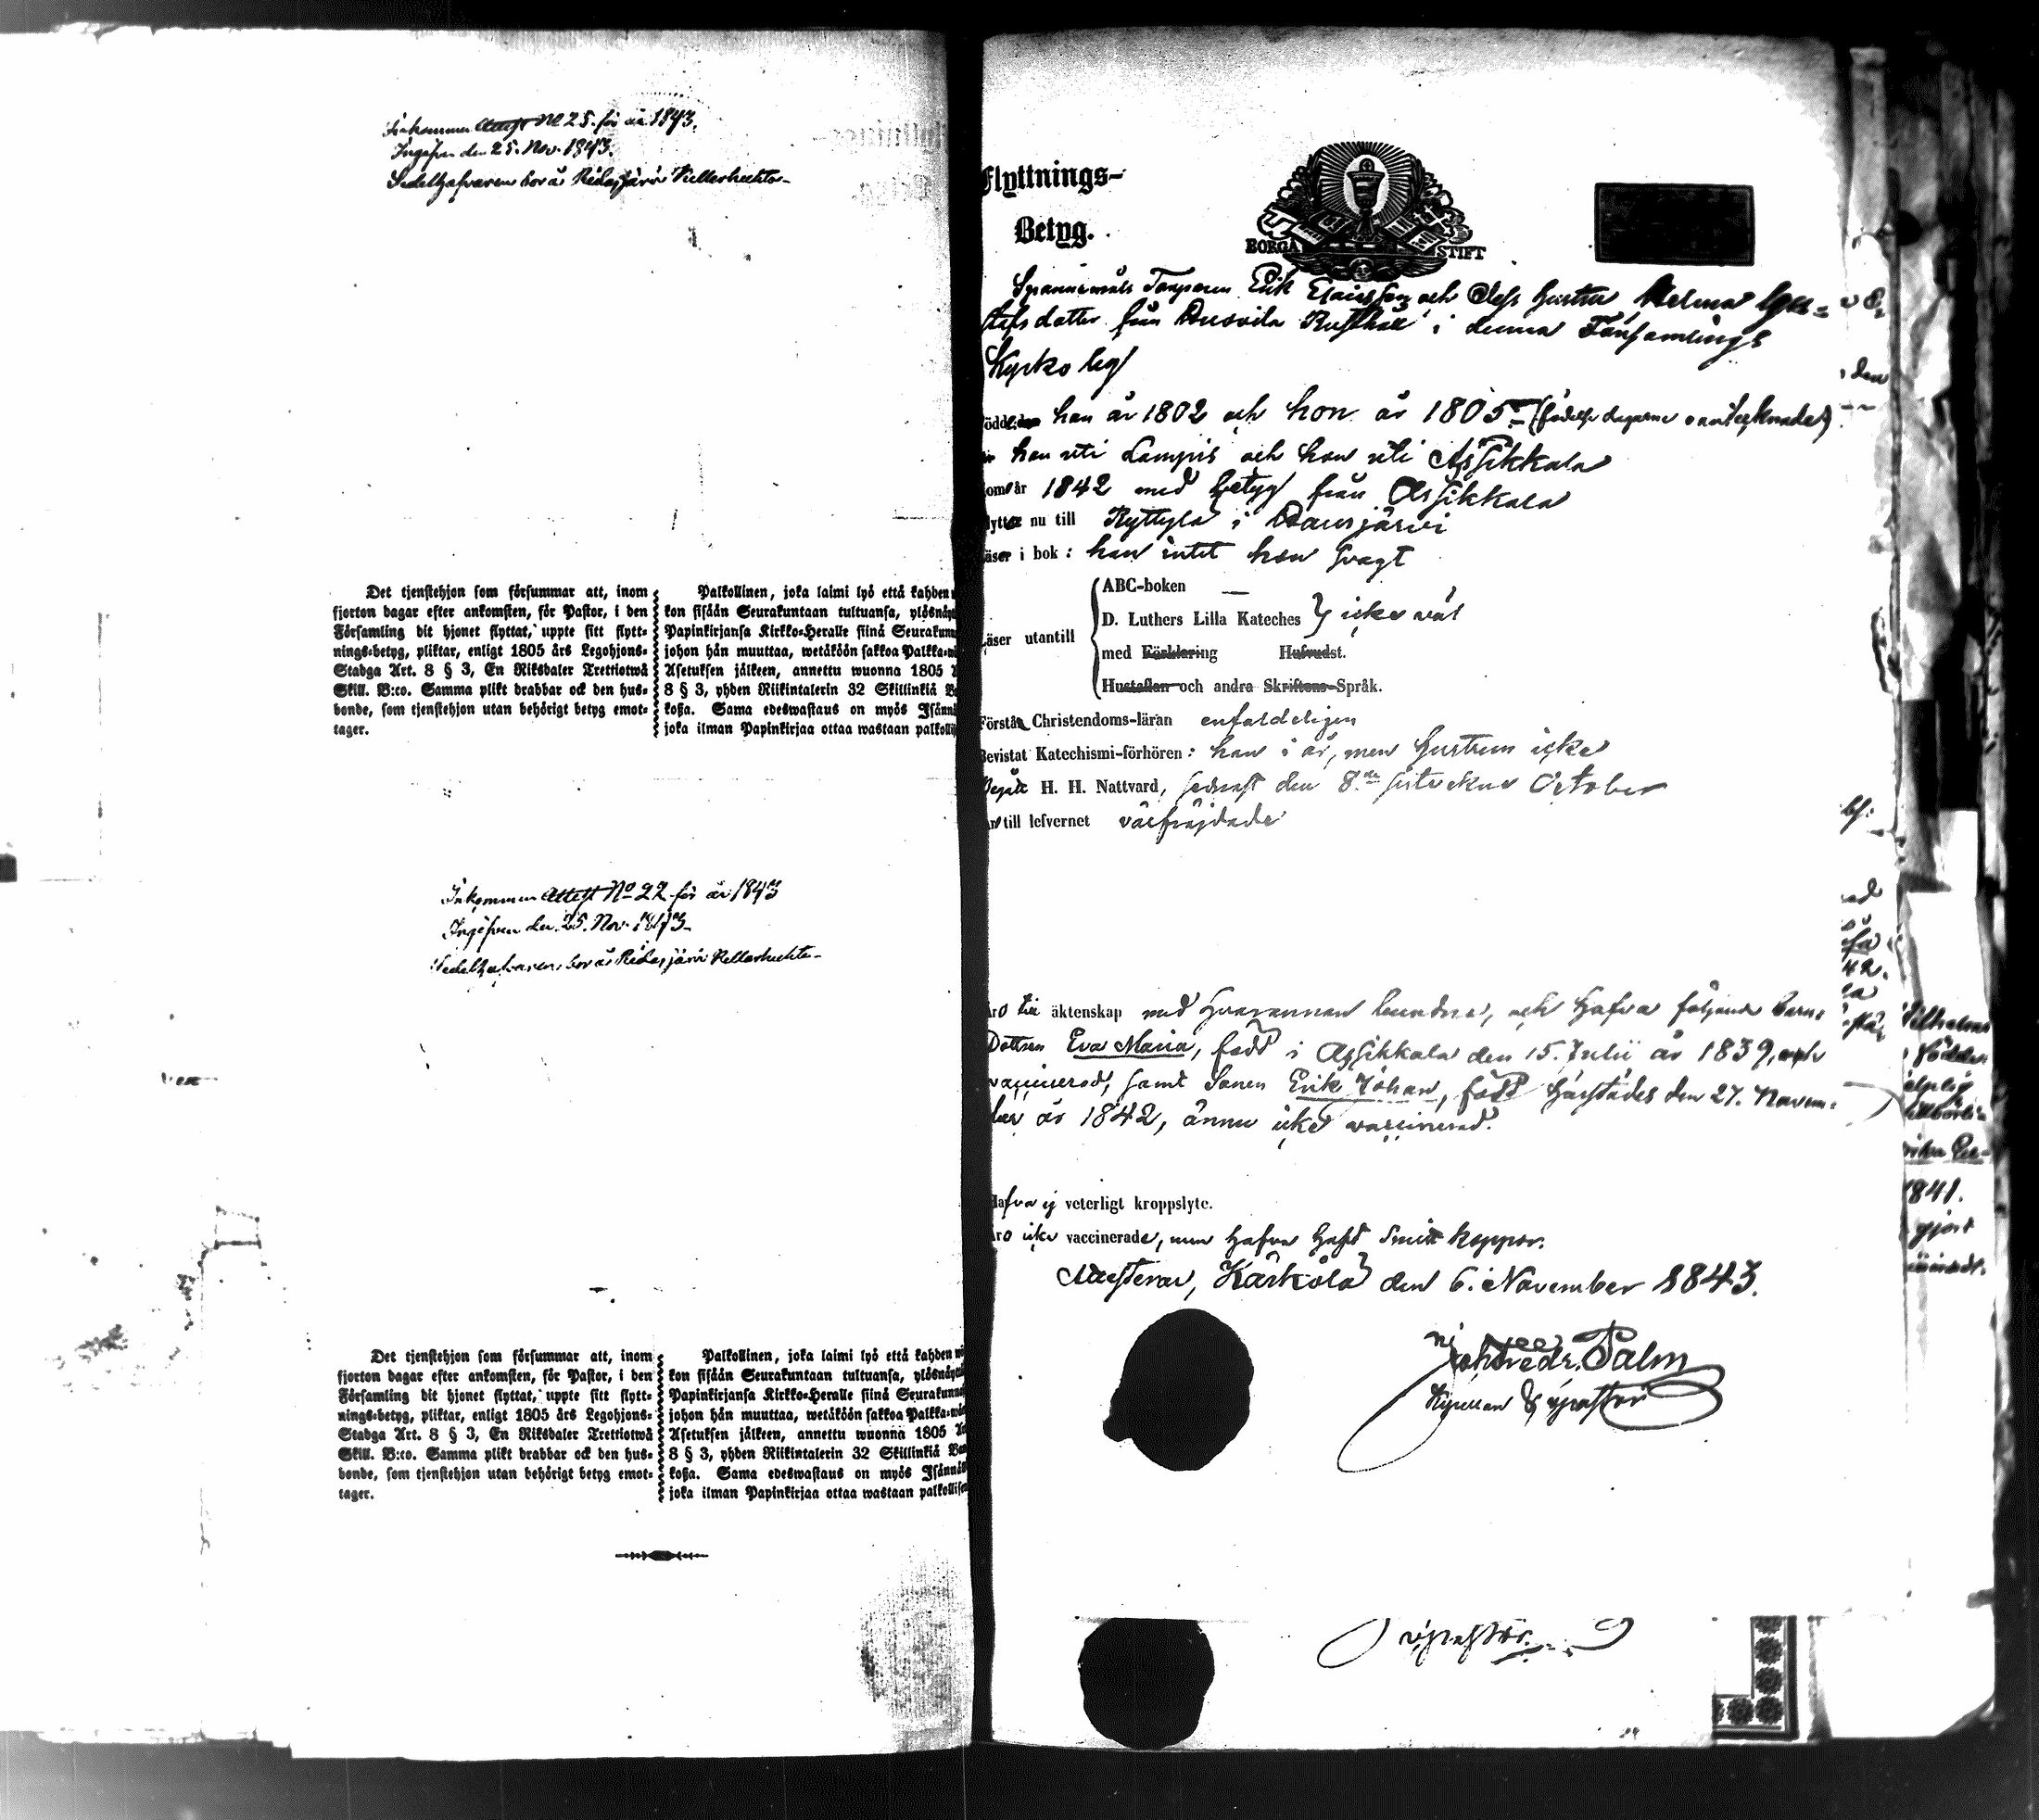 Inkommen Attest No 25. för år 1843.
Ingifven den 25. Nov. 1843.
Sedelhafvaren bor å Ridasjärvi Kellarhuhta
Det tjenstehjon som försummar att, inom
fjorton dagar efter ankomsten, för Pastor, i den
Församling dit hjonet flyttat, uppte sitt flytt-
nings-betyg, pliktar, enligt 1805 års Legohjons-
Stadga Art. 8 § 3, En Riksdaler Trettiotwå
Skill. B:co. Samma plikt drabbar ock den hus-
bonde, som tjenstehjon utan behörigt betyg emot-
tager.
Palkollinen, joka laimi lyö että kahden
kon sisään Seurakuntaan tultuansa, ylösnäyt
Papinkirjansa Kirkko-Heralle siinä Seurakun
johon hän muuttaa, wetäköön sakkoa Palkka-
Asetuksen jälkeen, annettu wuonna 1805
8 § 3, yhden Riikintalerin 32 Skillinkiä B
kossa. Sama edeswastaus on myös Isänn
joka ilman Papinkirjaa ottaa wastaan palkolli
Inkommen Attest No 22 för år 1843
Ingifven den 25. Nov. 1843.
Sedelhafvaren bor å Ridasjärvi Kellarhuhta
Det tjenstehjon som försummar att, inom
fjorton dagar efter ankomsten, för Pastor, i den
Församling dit hjonet flyttat, uppte sitt flytt-
nings-betyg, pliktar, enligt 1805 års Legohjons-
Stadga Art. 8 § 3, En Riksdaler Trettiotwå
Skill. B:co. Samma plikt drabbar ock den hus-
bonde, som tjenstehjon utan behörigt betyg emot-
tager.
Palkollinen, joka laimi lyö että kahden wii
kon sisään Seurakuntaan tultuansa, ylösnäyt
Papinkirjansa Kirkko-Heralle siinä Seurakunna
johon hän muuttaa, wetäköön sakkoa Palkka-wä
Asetuksen jälkeen, annettu wuonna 1805
8 § 3, yhden Riikintalerin 32 Skillinkiä Ban
kossa. Sama edeswastaus on myös Isännä
joka ilman Papinkirjaa ottaa wastaan palkollise
Flyttnings-
Betyg.
BORGÅ STIFT
Torparen Erik Ersson och dess hustru Helena Gus-
tafsdotter från Rusthåll i denna Församlings
Kyrko by
födde han år 1802 och hon år 1805 (födelse dagarne oantecknade)
han uti Lampis och hon uti Assikkala
kom år 1842 med betyg från Assikkala
flytta nu till Ryttylä i Hausjärvi
Läser i bok: han intet hon svagt
ABC-boken —
D. Luthers Lilla Kateches } icke väl
Läser utantill
med Förklaring Hufvudst.
Hustaflan och andra Skriftens-Språk.
Förstå Christendoms-läran enfaldeligen
Bevistat Katechismi-förhören: han i år, men hustrun icke
Begått H. H. Nattvard, sednast den 8de sistvekne October
till lefvernet välfräjdade
Äro till äktenskap med hvarannan bundne, och hafva följande barn:
Dottren Eva Maria, född i Assikkala den 15. Julii år 1839, och
vaccinerad, samt Sonen Erik Johan, född härstädes den 27. Novem-
ber år 1842, ännu icke vaccinerad.
Hafva ej veterligt kroppslyte.
Äro icke vaccinerade, men hafva haft Smittkoppor.
Attesterar, Kärkölä den 6. November 1843.
Palm
v pastor
v pastor.
1841.